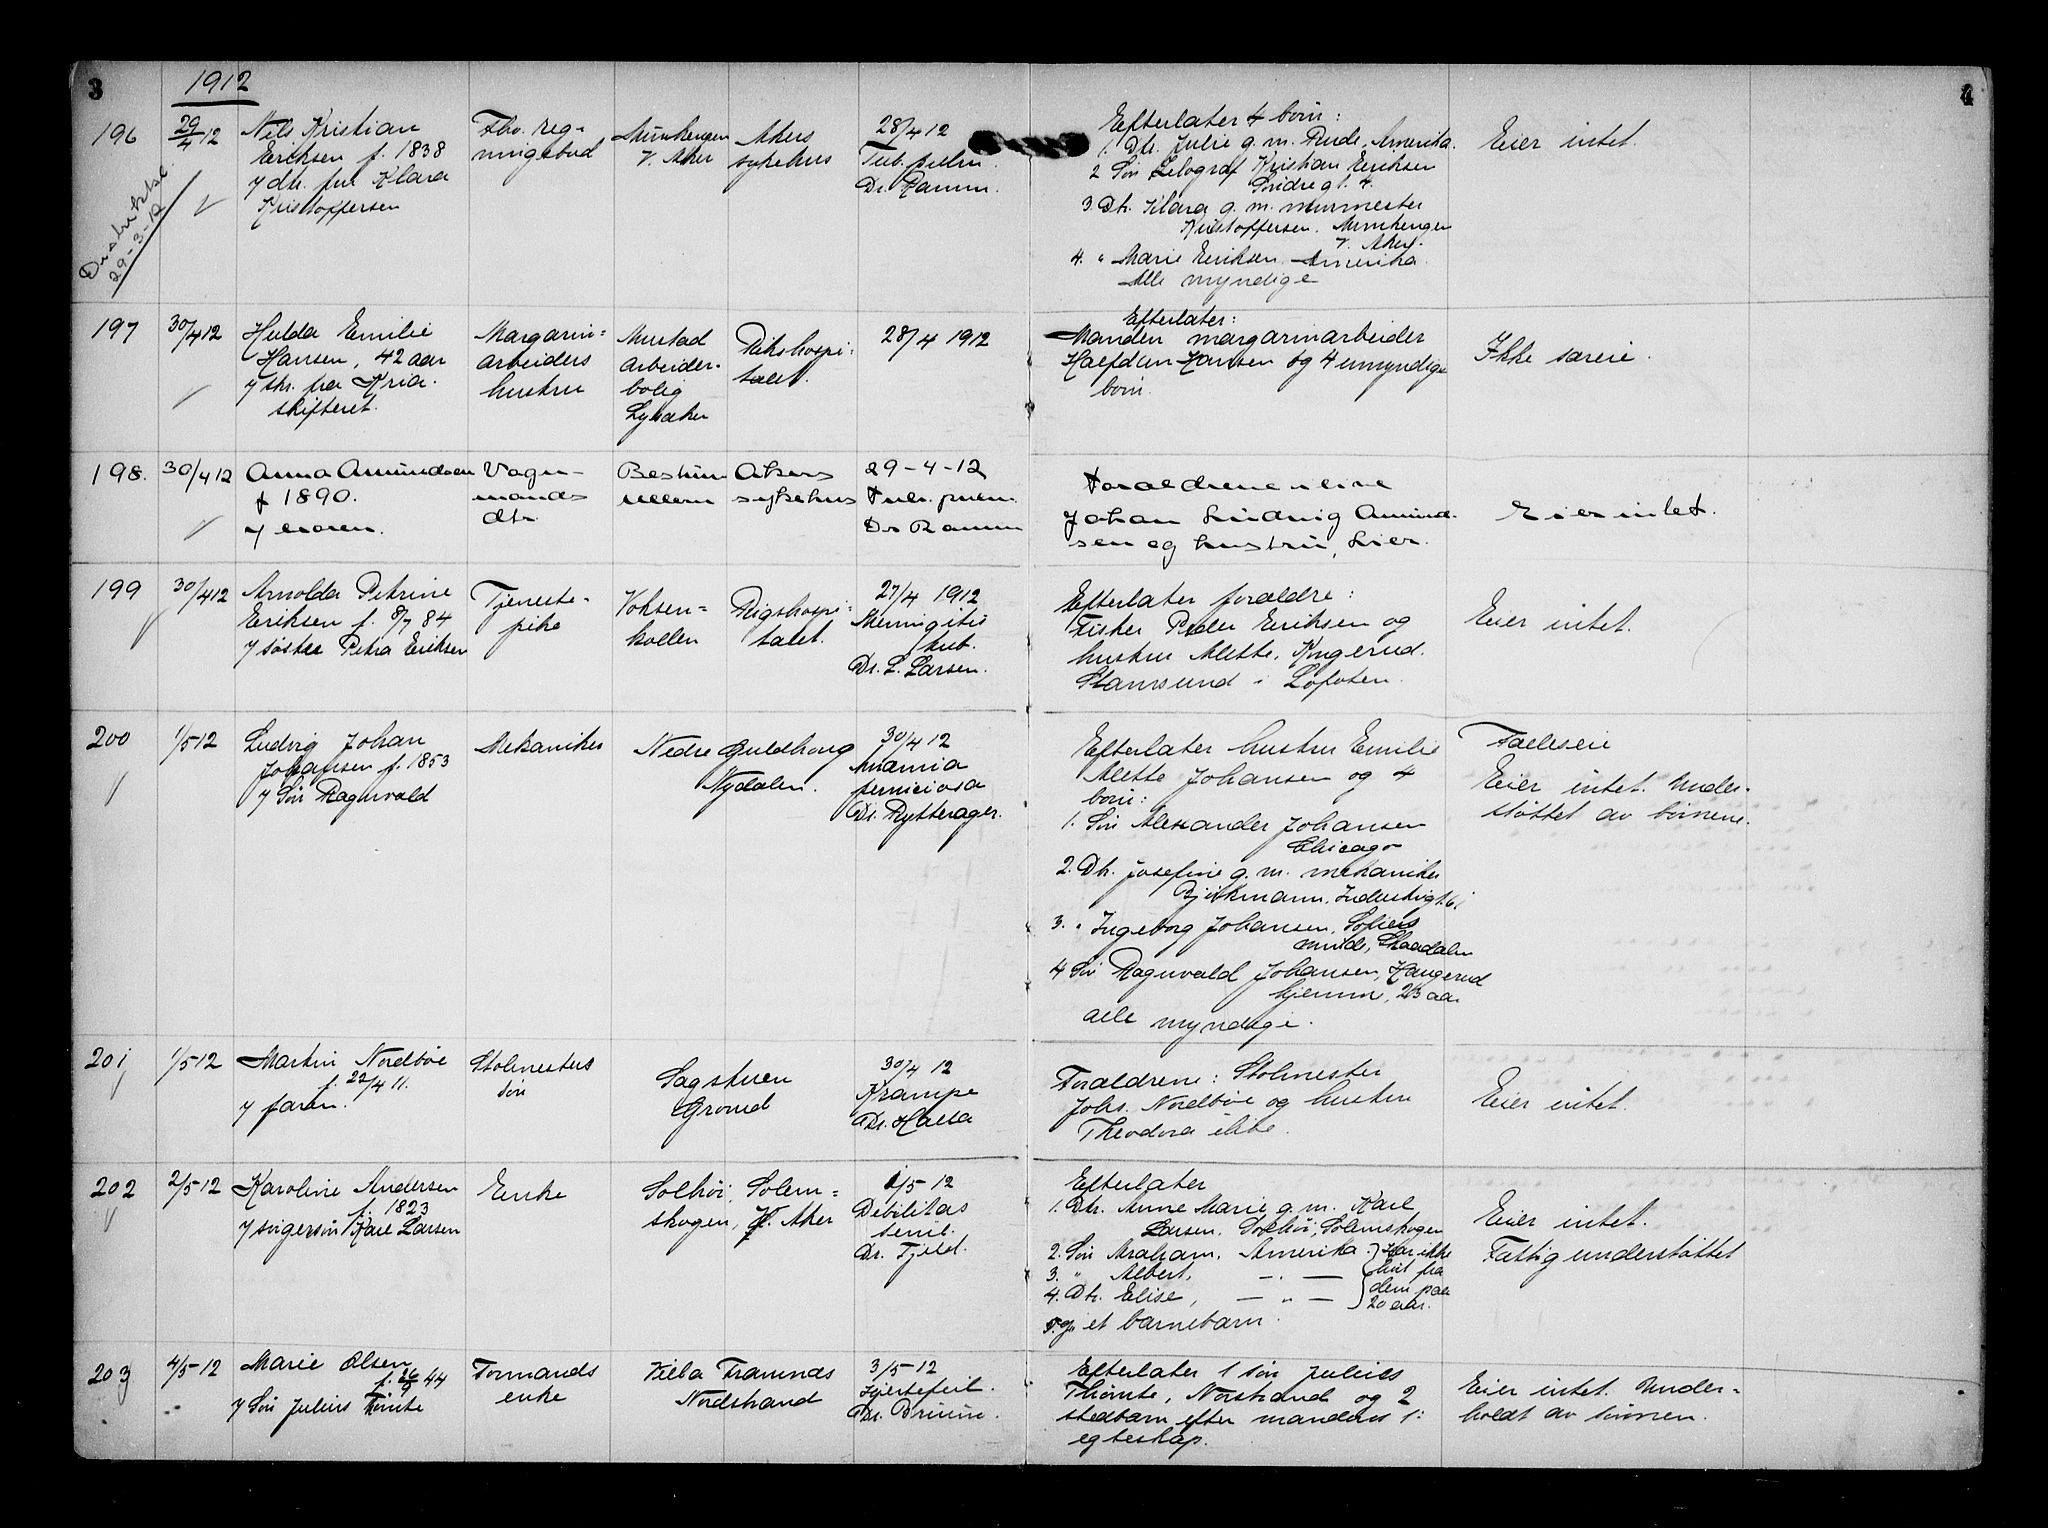 3
1912
4
196
29/4 12
Nils Kristian
Eriksen f. 1838
v/ dtr. fru Klara
Kristoffersen
Fhv. reg-
ningsbud
Munkengen
V. Aker
Akers
sykehus
28/4 12
Tub. pulm.
Dr. Ramm.
Efterlater 4 børn:
1. Dtr. Julie g. m. Rude, Amerika.
2 Søn Litograf Kristian Eriksen
Søndregt. 4.
3 Dtr. Klara g. m. murmester
Kristoffersen. Munkengen
V. Aker.
4. " Marie Eriksen Amerika
Alle myndige
Eier intet.
29-3-12
197
30/4 12
Hulda Emilie
Hansen, 42 aar
v/ skr. fra Kria.
skifteret.
Margarin=
arbeiders
hustru
Mustad
arbeider-
bolig
Lysaker
Rikshospi=
talet.
28/4 1912
Efterlater:
Manden margarinarbeider
Halfdan Hansen og 4 umyndige
børn.
Ikke særeie.
198.
30/4 12
Anna Amundsen
f 1890.
v/ moren.
Vogn-
mands
dtr.
Bestum
Ullern
Akers
sykehus
29-4-12
Tub. pulm.
Dr Ramm
Forældrene i live
Johan Ludvig Amund-
sen og hustru, Lier.
Eier intet.
199
30/4 12
Arnolda Petrine
Eriksen f. 8/7 84
v/ søster Petra Eriksen
Tjeneste-
pike
Voksen=
kollen
Rigshospi=
talet.
27/4 1912
Meningitis
tub.
Dr. L. Larsen.
Efterlater forældre:
Fisker Peder Eriksen og
hustru Mette, Kngerud.
Stamsund i Lofoten.
Eier intet.
200
1/5 12
Ludvig Johan
Johansen f. 1853
v/ Søn Ragnvald
Mekaniker
Nedre Guldhaug
Nydalen.
30/4 12
Anæmia
perniciosa
Dr. Rytterager.
Efterlater hustru Emilie
Mette Johansen og 4
børn:
1. Søn Alexander Johansen
Chicago
2. Dtr. Josefine g. m. mekaniker
Bjørkmann, Industrigt. 61
3. " Ingeborg Johansen, Sofies
minde, Skaadalen
4 Søn Ragnvald Johansen, Haugerud
hjemm, 23 aar
alle myndige.
Fælleseie
Eier intet. Under-
støttet av børnene.
201
1/5 12
Martin Nordbøe
f. 22/4 11.
v/ faren.
Stolmesters
søn
Sagstuen
Grorud
30/4 12
Krampe
Dr. Halsa
Forældrene: Stolmester
Johs. Nordbøe og hustru
Theodora i live.
Eier intet.
202
2/5 12
Karoline Andersen
f. 1823
v/ svigersøn Karl Larsen
Enke
Solhøi, Solem=
skogen, V. Aker
1/5 12
Debilitas
senil.
Dr. Fjeld.
Efterlater
1. Dtr. Anne Marie g. m. Karl
Larsen, Solhøi, Solemskogen
2. Søn Abraham, Amerika. } Har ikke
3. " Albert, — " — hørt fra
4. Dtr. Elise, — " — dem paa
20 aar.
og et barnebarn.
Eier intet.
Fattigunderstøttet
203
4/5 12
Marie Olsen
f. 26/9 44
v/ Søn Julius Tømte
Formands
enke
Villa Framnæs
Nordstrand
3/5 12
Hjertefeil.
Dr. Bruun.
Efterlater 1 søn Julius
Thømte, Norstrand og 2
stedbarn efter mandens 1:
egteskap.
Eier intet. Under=
holdt av sønnen.